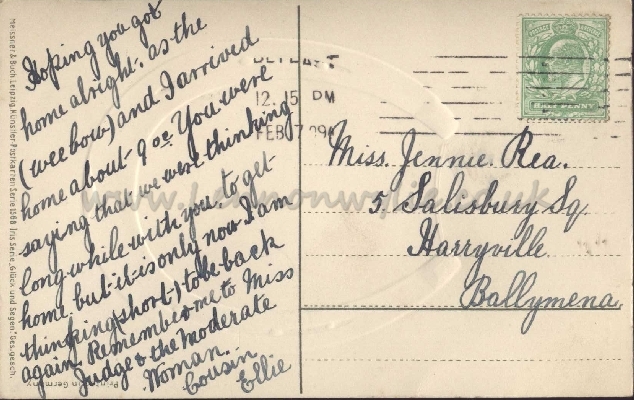 Hoping you got
home alright. as the
(wee bow) and I arrived
home about 9 oc. You were
saying that we were thinking
long while with you, to get
home, but it is only now I am
thinking (short) to be back
again. Remember me to Miss
Judge & the Moderate
Woman.
Cousin
Ellie
BELFAST
12. 15 PM
FEB 17 09
HALF PENNY
Miss. Jennie Rea.
5 Salisbury Sq
Harryville
Ballymena.
www.lennonwylie.co.uk
Meissner & Buch Leipzig Künstler-Postkarten Serie 1968 Iris Serie „Glück und Segen" Ges. gesch.
Printed in Germany